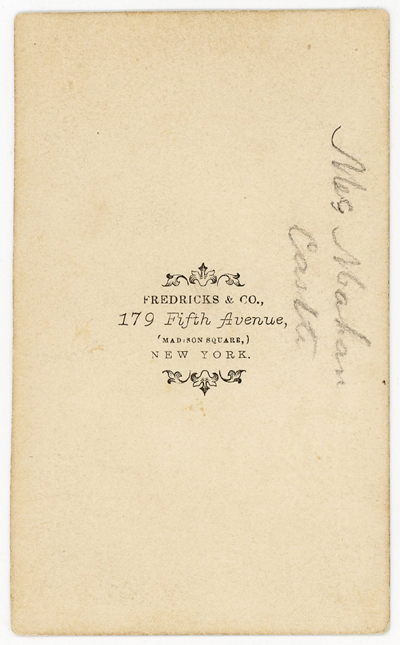 FREDRICKS & CO.,
179 Fifth Avenue,
(MADISON SQUARE,)
NEW YORK.
Mrs Mahan
Castle